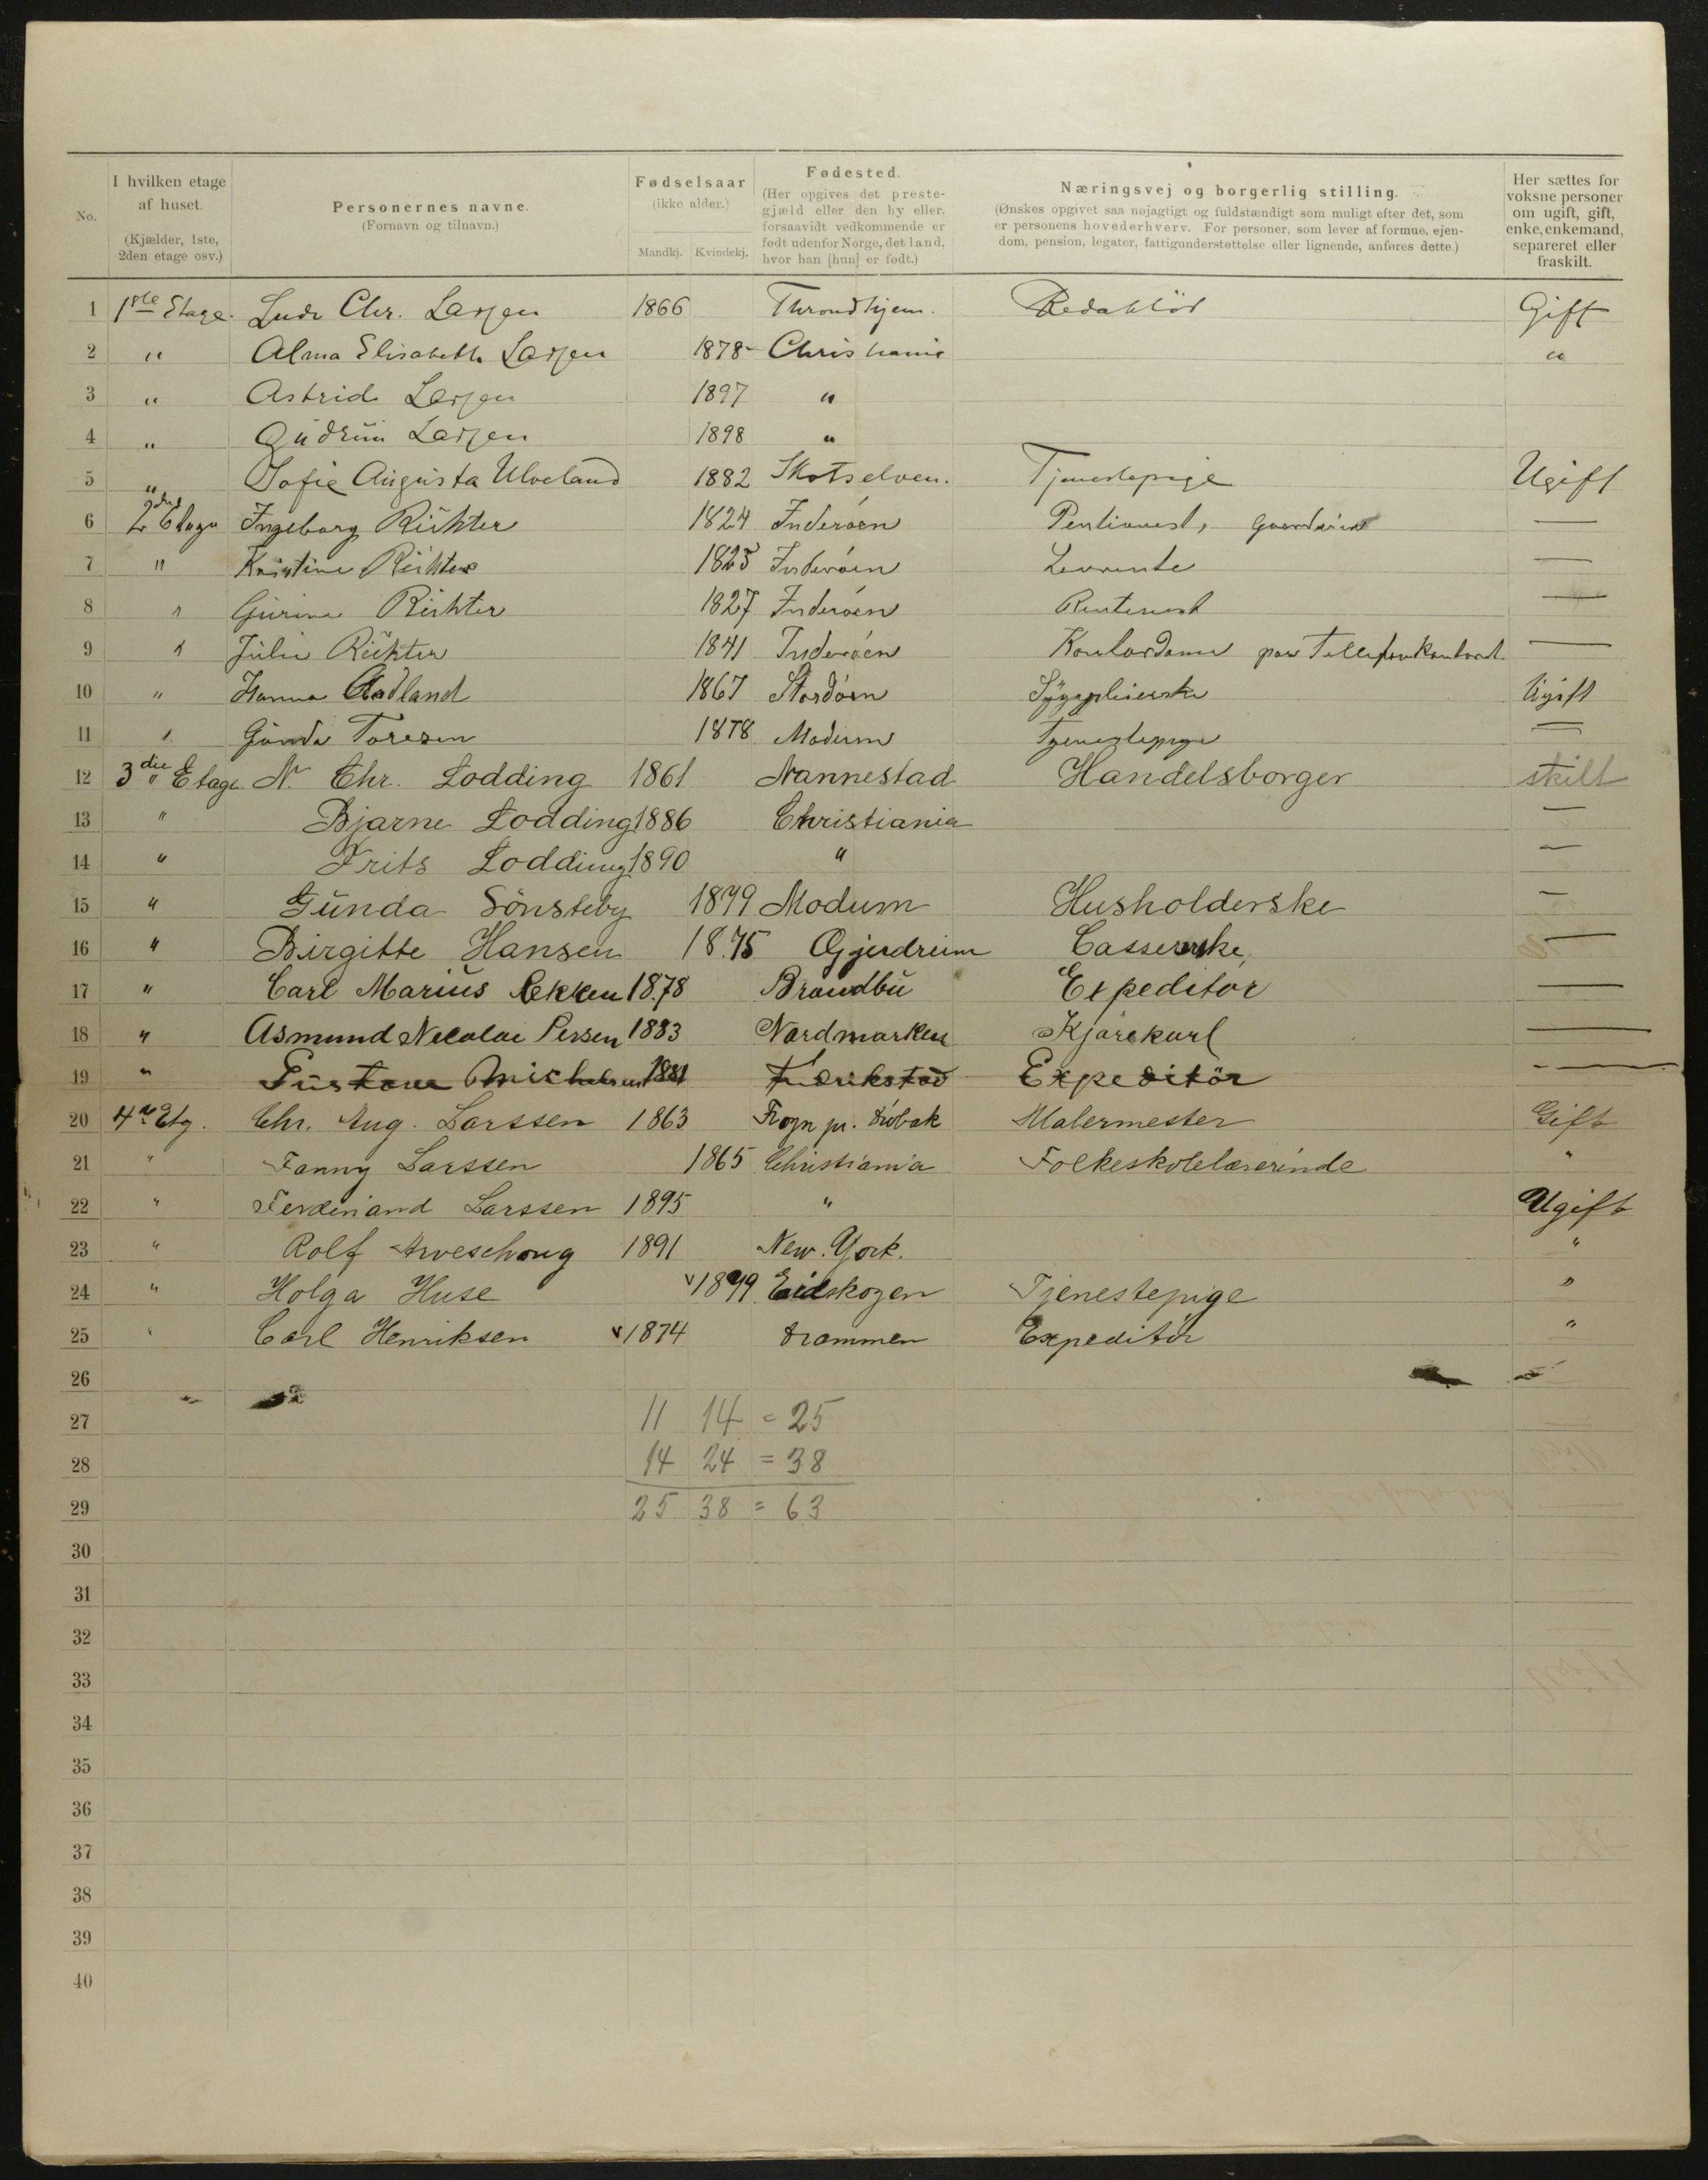 No.
I hvilken etage
af huset.
(Kjælder, 1ste,
2den etage osv.)
Personernes navne.
(Fornavn og tilnavn.)
Fødselsaar
(ikke alder.)
Mandkj. Kvindekj.
Fødested.
(Her opgives det preste-
gjæld eller den by eller,
forsaavidt vedkommende er
født udenfor Norge, det land,
hvor han [hun] er født.)
Næringsvej og borgerlig stilling.
(Ønskes opgivet saa nøjagtigt og fuldstændigt som muligt efter det, som
er personens hovederhverv. For personer, som lever af formue, ejen-
dom, pension, legater, fattigunderstøttelse eller lignende, anføres dette.)
Her sættes for
voksne personer
om ugift, gift,
enke, enkemand,
separeret eller
fraskilt.
1 1ste Etage. Ludv Chr. Larsen 1866 Throndhjem. Redaktör Gift
2 " Alma Elisabeth Larsen 1878 Christiania "
3 " Astrid Larsen 1897 "
4 " Gudrun Larsen 1898 "
5 " Sofie Augusta Ulveland 1882 Skotselven. Tjenestepige Ugift
6 2den Etage Ingeborg Richter 1824 Inderøen —
7 " Kristine Richter 1825 Inderøen Levrente —
8 " Gurine Richter 1827 Inderøen —
9 " Julie Richter 1841 Inderøen Kontordame paa —
10 " Hanna Aadland 1867 Stordøen Sygepleierske Ugift
11 " Gunda Toresen 1878 Modum Tjenestepige —
12 3die Etage N. Chr. Lodding 1861 Nannestad Handelsborger skilt
13 " Bjarne Lodding 1886 Christiania —
14 " Frits Lodding 1890 " —
15 " Gunda Sönsteby 1879 Modum Husholderske —
16 " Birgitte Hansen 1875 Gjerdrum Casserske —
17 " Carl Marius 1878 Brandbu Expeditör —
18 " Asmund Necolai Persen 1883 Nordmarken Kjörekarl —
19 " Gustave Michelsen 1881 Fredrikstad Expeditör —
20 4de Etg. Chr. Aug. Larssen 1863 Frogn pr. Dröbak Malermester Gift
21 " Fanny Larssen 1865 Christiania Folkeskolelærerinde "
22 " Ferdinand Larssen 1895 " Ugift
23 " Rolf Arveschoug 1891 New. York. "
24 " Holga Huse 1879 Eidskogen Tjenestepige "
25 " Carl Henriksen 1874 Drammen Expeditör "
26
27 11 14 = 25
28 14 24 = 38
29 25 38 = 63
30
31
32
33
34
35
36
37
38
39
40